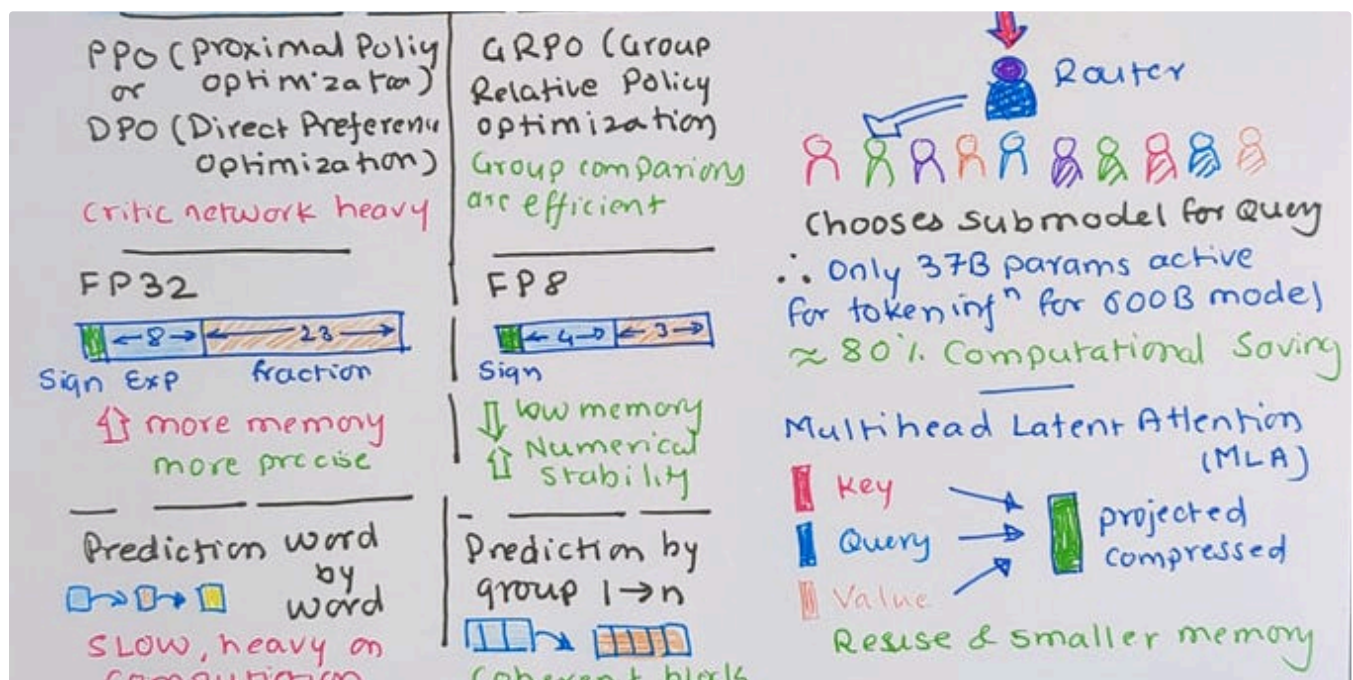 PPO (Proximal Policy
or optimization)
DPO (Direct Preference
optimization)
Critic network heavy
FP32
8 23
Sign Exp fraction
more memory
more precise
Prediction word
by
word
SLOW, heavy on
computation
GRPO (Group
Relative Policy
optimization)
Group comparions
are efficient
FP8
4 3
Sign
low memory
Numerical
Stability
Prediction by
group 1→n
Coherent block
Router
Chooses submodel for Query
∴ Only 37B params active
for tokeninfⁿ for 600B model
≈ 80% Computational Saving
Multihead Latent Attention
(MLA)
Key
Query
Value
projected
compressed
Resuse & smaller memory